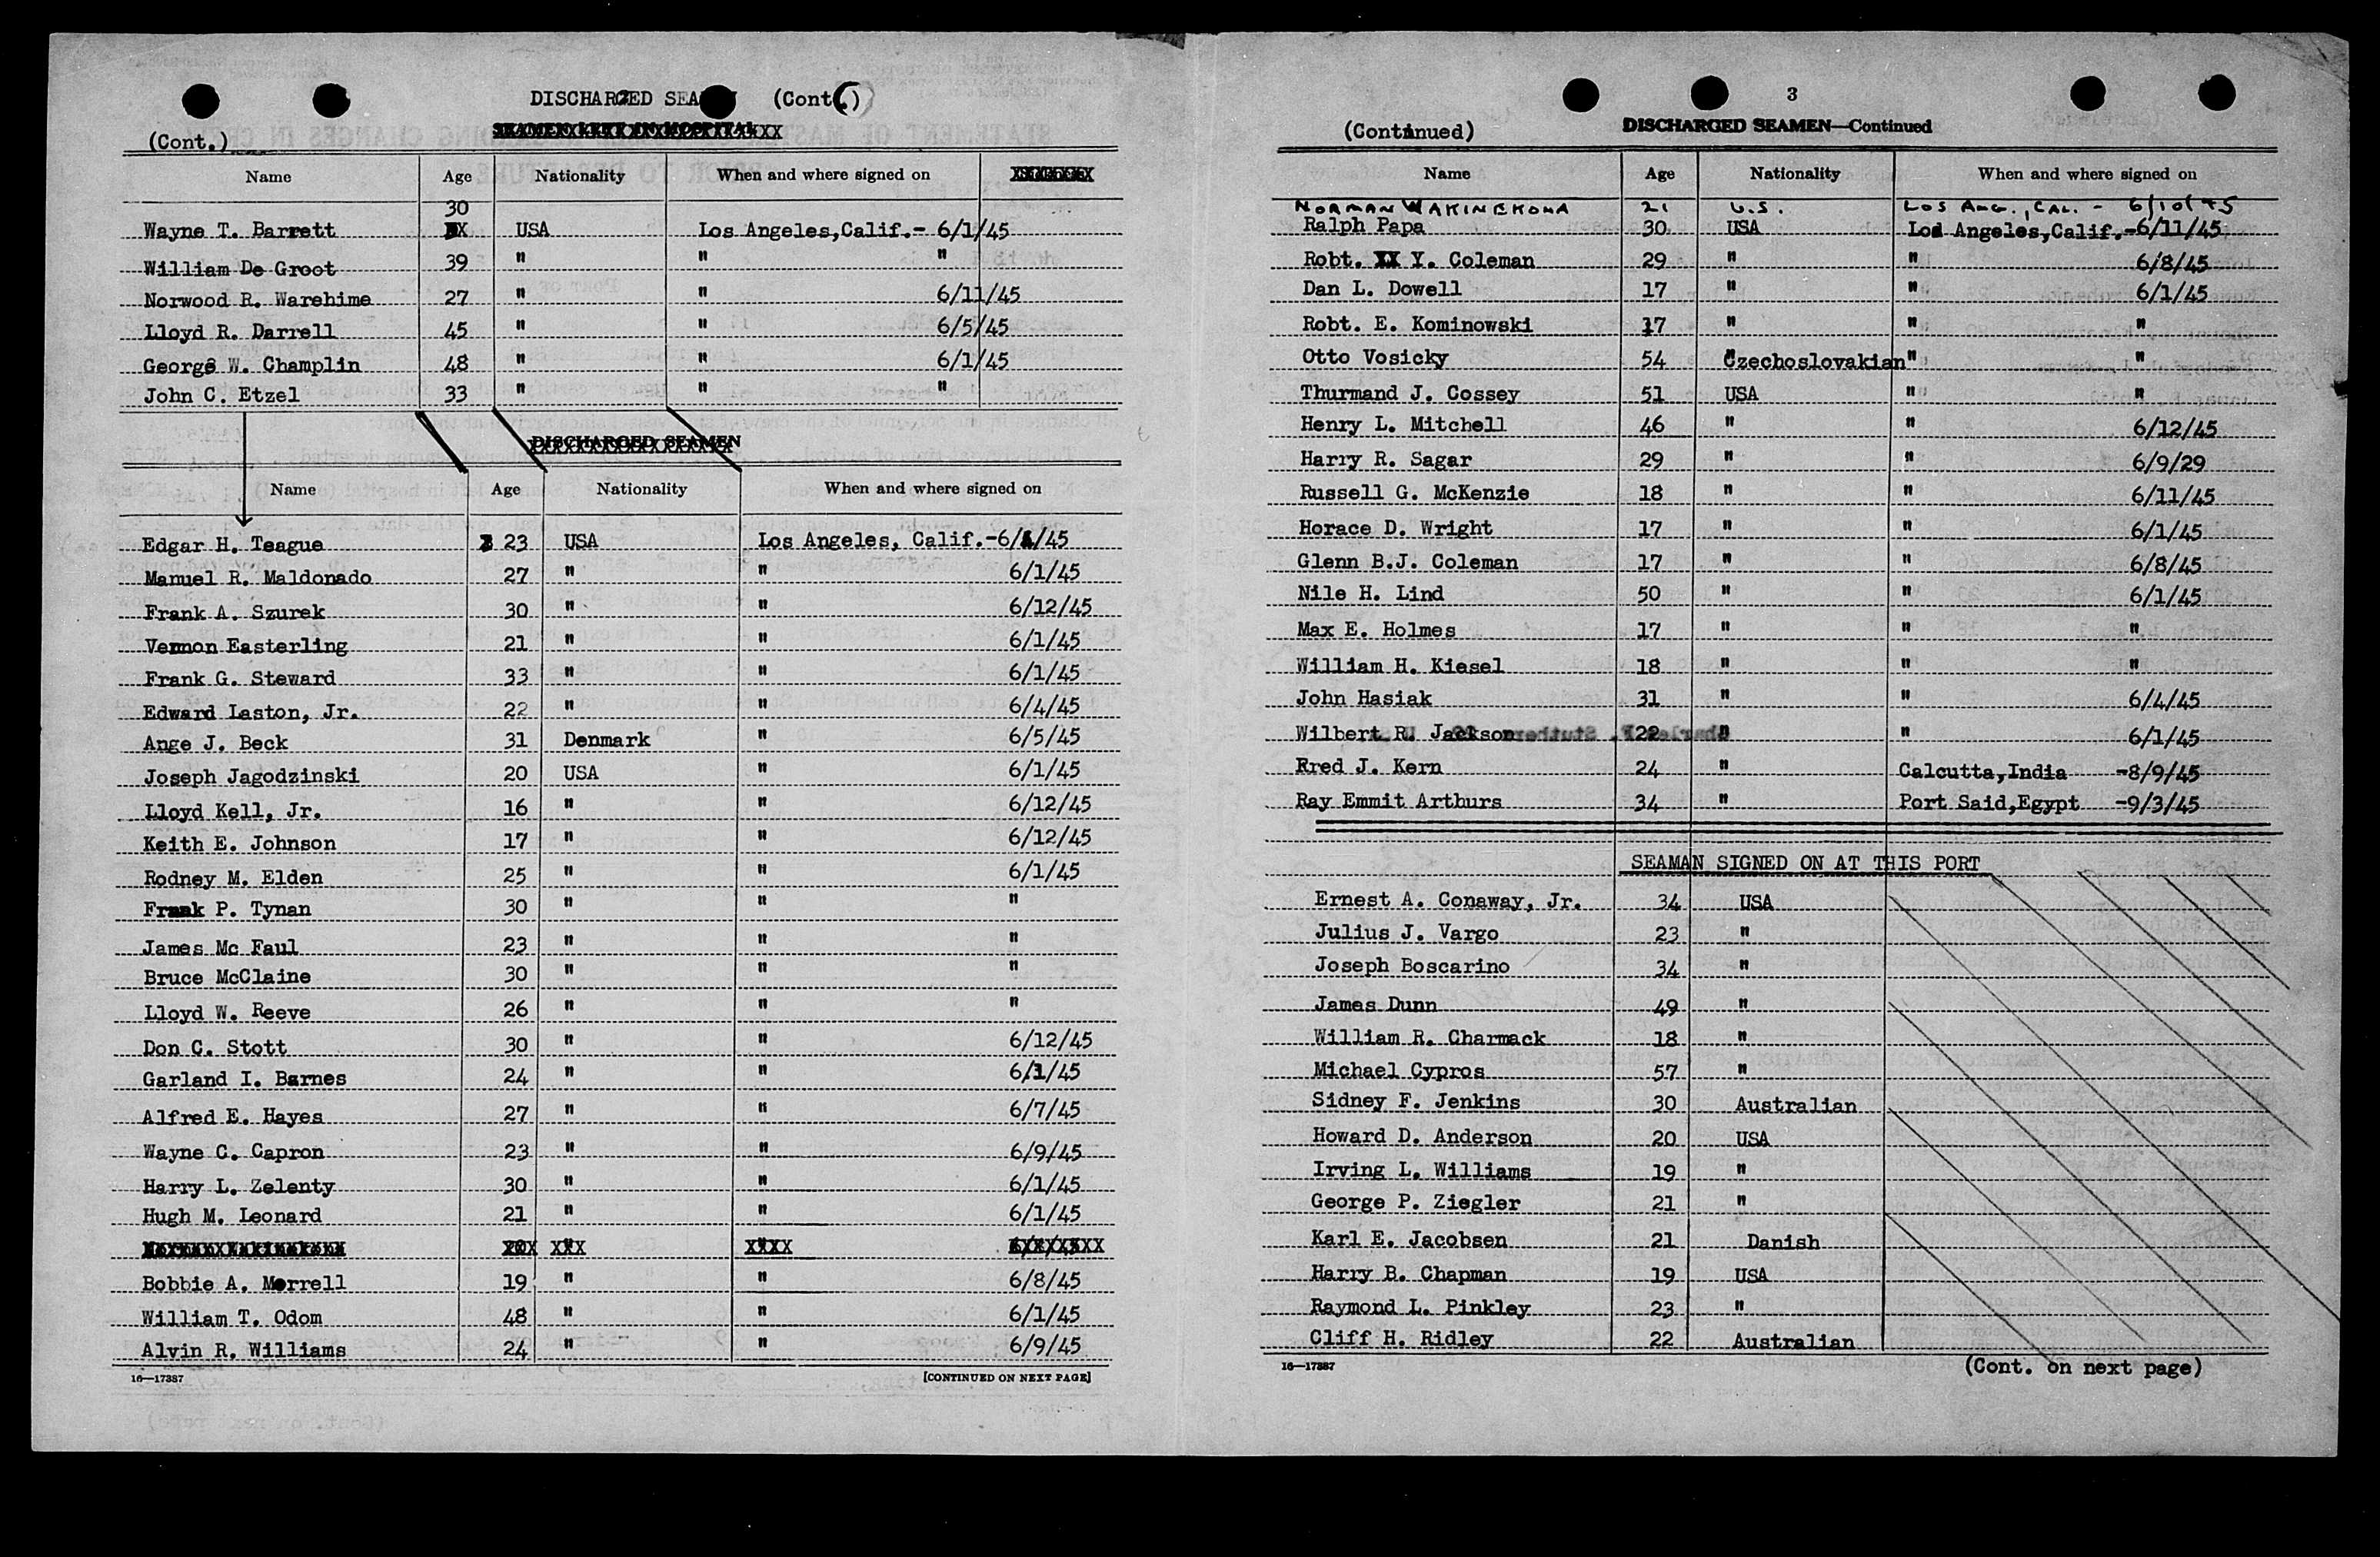 DISCHARGED SEA (Cont.)
(Cont.)
Name Age Nationality When and where signed on
30
Wayne T. Barrett USA Los Angeles,Calif.- 6/1/45
William De Groot 39 " " "
Norwood R. Warehime 27 " " 6/11/45
Lloyd R. Darrell 45 " " 6/5/45
George W. Champlin 48 " " 6/1/45
John C. Etzel 33 " " "
DISCHARGED SEAMEN
Name Age Nationality When and where signed on
Edgar H. Teague 23 USA Los Angeles, Calif.-6/1/45
Manuel R. Maldonado 27 " " 6/1/45
Frank A. Szurek 30 " " 6/12/45
Vernon Easterling 21 " " 6/1/45
Frank G. Steward 33 " " 6/1/45
Edward Laston, Jr. 22 " " 6/4/45
Ange J. Beck 31 Denmark " 6/5/45
Joseph Jagodzinski 20 USA " 6/1/45
Lloyd Kell, Jr. 16 " " 6/12/45
Keith E. Johnson 17 " " 6/12/45
Rodney M. Elden 25 " " 6/1/45
Frank P. Tynan 30 " " "
James Mc Faul 23 " " "
Bruce McClaine 30 " " "
Lloyd W. Reeve 26 " " "
Don C. Stott 30 " " 6/12/45
Garland I. Barnes 24 " " 6/1/45
Alfred E. Hayes 27 " " 6/7/45
Wayne C. Capron 23 " " 6/9/45
Harry L. Zelenty 30 " " 6/1/45
Hugh M. Leonard 21 " " 6/1/45
Bobbie A. Morrell 19 " " 6/8/45
William T. Odom 48 " " 6/1/45
Alvin R. Williams 24 " " 6/9/45
16—17387 [CONTINUED ON NEXT PAGE]
3
(Continued) DISCHARGED SEAMEN—Continued
Name Age Nationality When and where signed on
NORMAN WAKINEKONA 21 U.S. LOS ANG., CAL. - 6/10/45
Ralph Papa 30 USA Los Angeles,Calif.-6/11/45
Robt. XX Y. Coleman 29 " " 6/8/45
Dan L. Dowell 17 " " 6/1/45
Robt. E. Kominowski 17 " " "
Otto Vosicky 54 Czechoslovakian " "
Thurmand J. Cossey 51 USA " "
Henry L. Mitchell 46 " " 6/12/45
Harry R. Sagar 29 " " 6/9/29
Russell G. McKenzie 18 " " 6/11/45
Horace D. Wright 17 " " 6/1/45
Glenn B.J. Coleman 17 " " 6/8/45
Nile H. Lind 50 " " 6/1/45
Max E. Holmes 17 " " "
William H. Kiesel 18 " " "
John Hasiak 31 " " 6/4/45
Wilbert R. Jackson 22 " " 6/1/45
Rred J. Kern 24 " Calcutta,India -8/9/45
Ray Emmit Arthurs 34 " Port Said,Egypt -9/3/45
SEAMAN SIGNED ON AT THIS PORT
Ernest A. Conaway, Jr. 34 USA
Julius J. Vargo 23 "
Joseph Boscarino 34 "
James Dunn 49 "
William R. Charmack 18 "
Michael Cypros 57 "
Sidney F. Jenkins 30 Australian
Howard D. Anderson 20 USA
Irving L. Williams 19 "
George P. Ziegler 21 "
Karl E. Jacobsen 21 Danish
Harry B. Chapman 19 USA
Raymond L. Pinkley 23 "
Cliff H. Ridley 22 Australian
16—17387 (Cont. on next page)